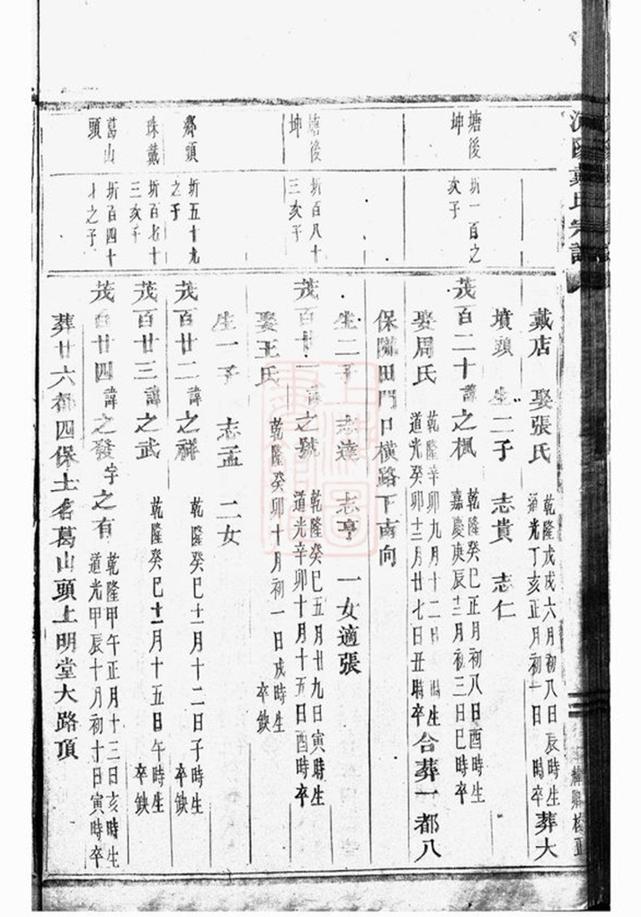 戴氏宗譜
戴店 娶張氏 乾隆戊戌六月初八日辰時生 道光丁亥正月初一日 時卒 葬大
墳頭 生二子 志貴 志仁
塘後坤 圻一百之次子
茂百二十諱之楓 乾隆癸巳正月初八日酉時生 嘉慶庚辰三月初三日巳時卒
娶周氏 乾隆辛卯九月十二日 時生 道光癸卯十三月廿七日丑時卒 合葬一都八
保隴田門口橫路下南向
生二子 志達 志亨 一女適張
塘後坤 圻百八十三次子
茂百廿一諱之號 乾隆癸巳五月廿九日寅時生 道光辛卯十月十五日酉時卒
娶王氏 乾隆癸卯十月初一日戌時生 卒缺
生一子 志孟 二女
鄉頭 圻五十九之子
茂百廿二諱之祥 乾隆癸巳十一月十二日子時生 卒缺
珠戴 圻百七十三次子
茂百廿三諱之武 乾隆癸巳十一月十五日午時生 卒缺
葛山頭 圻百四十才之子
茂百廿四諱之發字之有 乾隆甲午正月十三日亥時生 道光甲辰十月初十日寅時卒
葬廿六都四保土名葛山頭上明堂大路頂